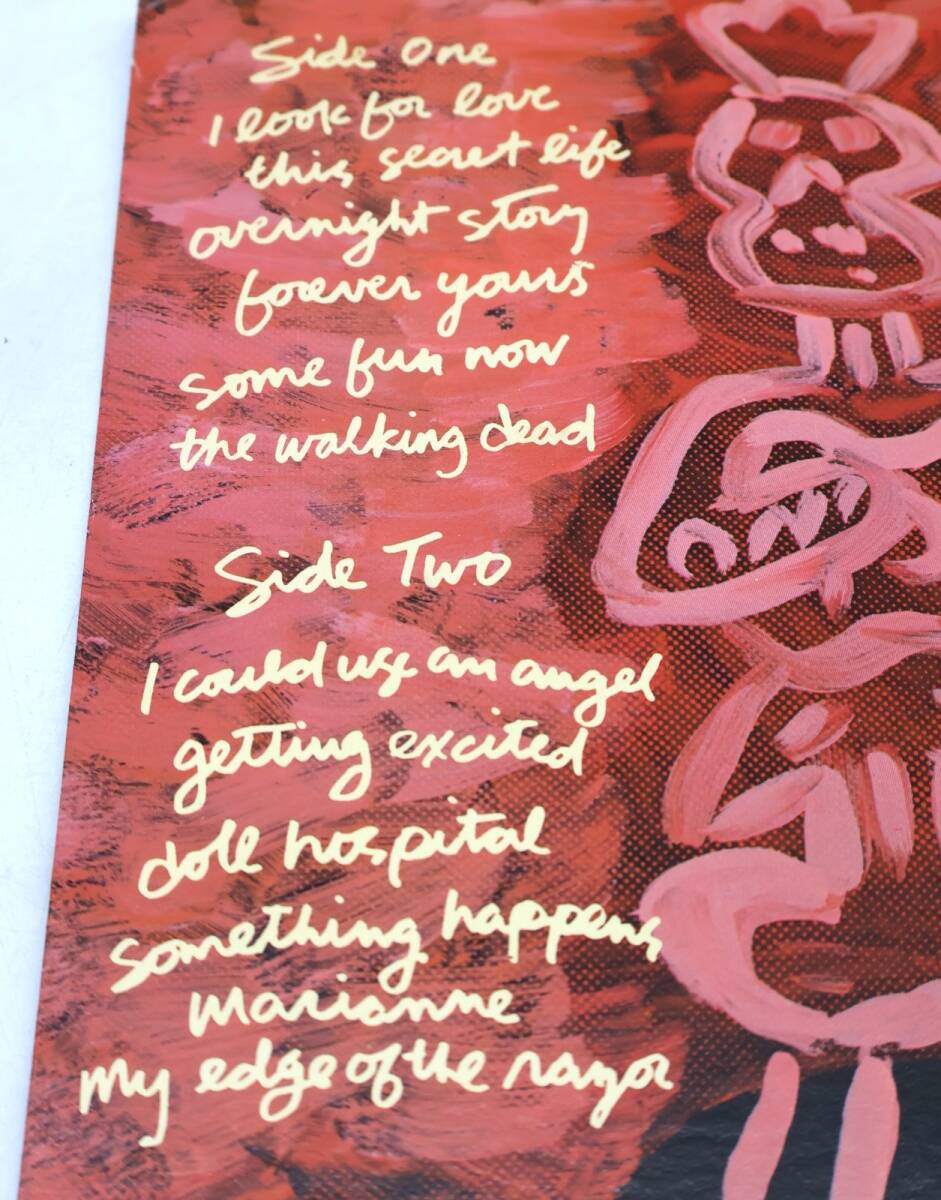 Side One
I look for love
this secret life
overnight story
forever yours
some fun now
the walking dead
Side Two
I could use an angel
getting excited
doll hospital
something happens
Marianne
My edge of the razor